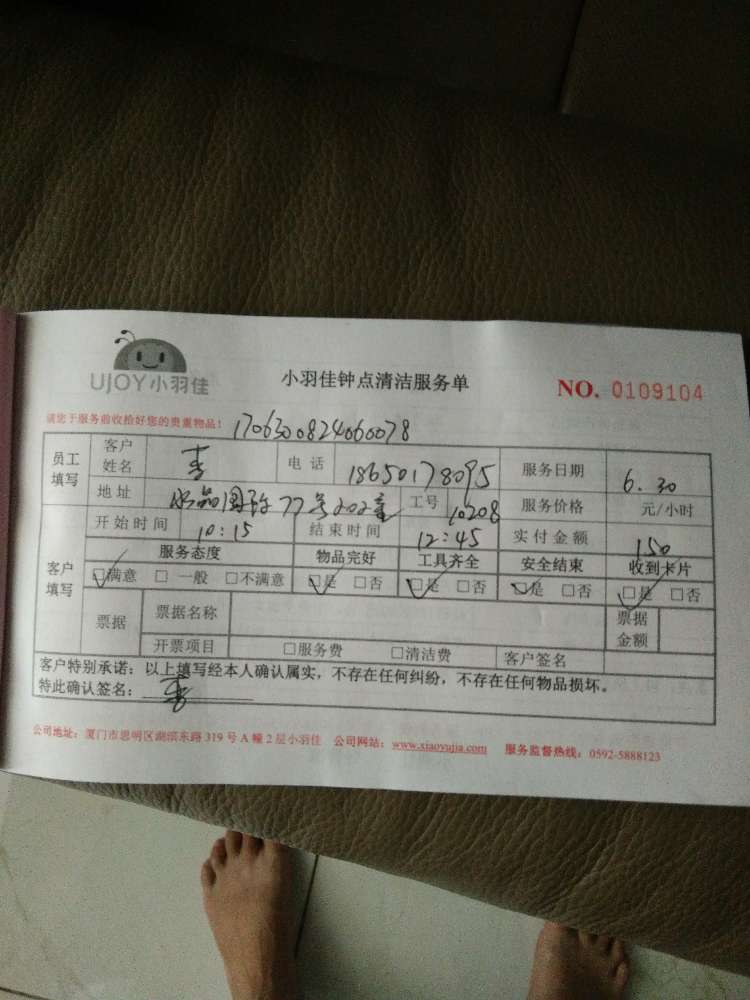 UJOY小羽佳
小羽佳钟点清洁服务单
NO. 0109104
请您于服务前收拾好您的贵重物品! 1706300824060078
员工填写 客户姓名 电话 18650178095 服务日期 6.30
地址 77号202室 工号 10208 服务价格 元/小时
开始时间 10:15 结束时间 12:45 实付金额 150
客户填写 服务态度 物品完好 工具齐全 安全结束 收到卡片
☑满意 □一般 □不满意 ☑是 □否 ☑是 □否 ☑是 □否 ☑是 □否
票据 票据名称 票据金额
开票项目 □服务费 □清洁费 客户签名
客户特别承诺:以上填写经本人确认属实,不存在任何纠纷,不存在任何物品损坏。
特此确认签名:
公司地址:厦门市思明区湖滨东路319号A幢2层小羽佳 公司网站:www.xiaoyujia.com 服务监督热线:0592-5888123